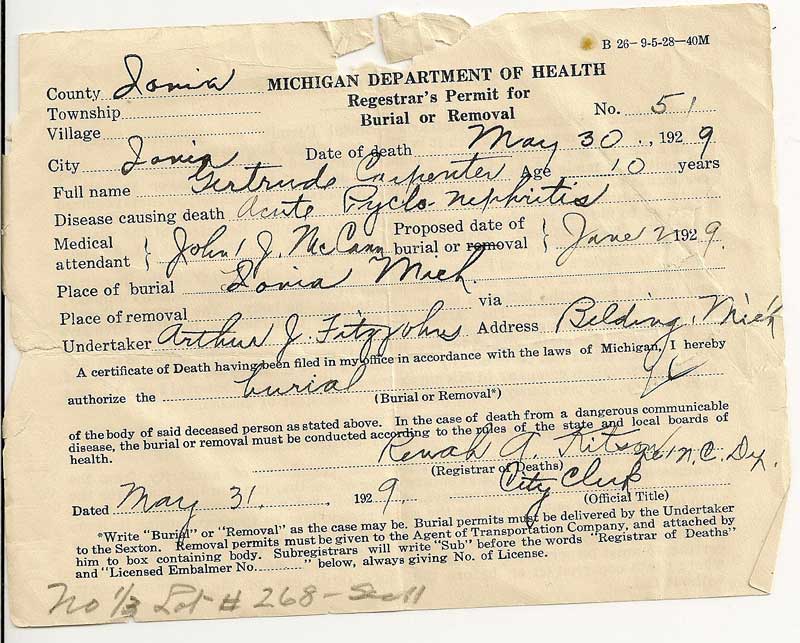 B 26-9-5-28-40M
County Ionia
MICHIGAN DEPARTMENT OF HEALTH
Township
Regestrar's Permit for
Burial or Removal
No. 51
Village
City Ionia
Date of death May 30, 1929
Full name Gertrude Carpenter Age 10 years
Disease causing death Acute Pyelo-nephritis
Medical attendant } John J. McCann
Proposed date of burial or removal } June 2 1929.
Place of burial Ionia Mich.
Place of removal via
Undertaker Arthur J. Fitzjohns Address Belding, Mich
A certificate of Death having been filed in my office in accordance with the laws of Michigan, I hereby
authorize the burial
(Burial or Removal*)
of the body of said deceased person as stated above. In the case of death from a dangerous communicable
disease, the burial or removal must be conducted according to the rules of the state and local boards of
health.
A. Kitson
(Registrar of Deaths)
City Clerk
Dated May 31. 1929.
(Official Title)
*Write "Burial" or "Removal" as the case may be. Burial permits must be delivered by the Undertaker
to the Sexton. Removal permits must be given to the Agent of Transportation Company, and attached by
him to box containing body. Subregistrars will write "Sub" before the words "Registrar of Deaths"
and "Licensed Embalmer No.............." below, always giving No. of License.
No 1/3 Lot # 268 - Sec 11